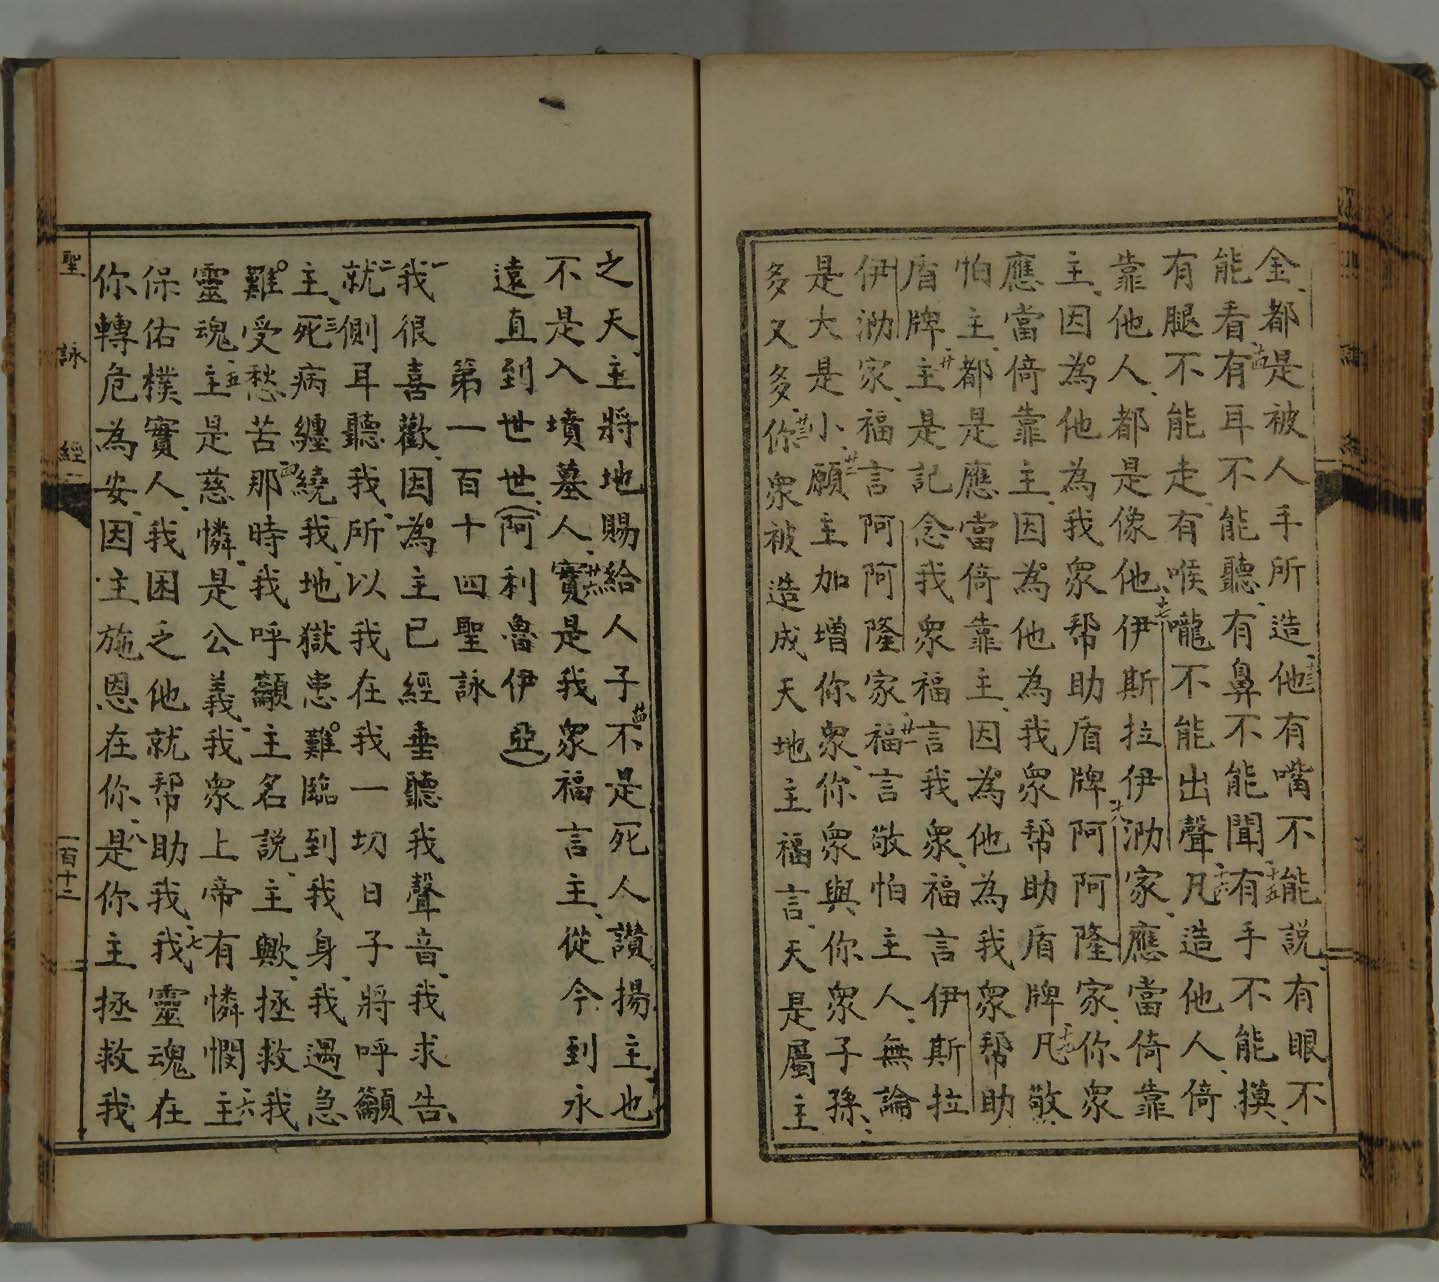 金、都是被人手所造、十三他有嘴不能說、有眼不
能看、十四有耳不能聽、有鼻不能聞、十五有手不能摸、
有腿不能走、有喉嚨不能出聲、十六凡造他人、倚
靠他人、都是像他、十七伊斯拉伊泐家、應當倚靠
主、因為他為我衆帮助盾牌、十八阿阿隆家、你衆
應當倚靠主、因為他為我衆帮助盾牌、十九凡敬
怕主、都是應當倚靠主、因為他為我衆帮助
盾牌、廿主是記念我衆福言我衆、福言伊斯拉
伊泐家、福言阿阿隆家、廿一福言敬怕主人、無論
是大是小、廿二願主加增你衆、你衆與你衆子孫、
多又多、廿三你衆被造成天地主福言、天是屬主
之天、主將地賜給人子、廿四不是死人讃揚主、也
不是入墳墓人、廿五實是我衆福言主、從今到永
遠直到世世、（阿利魯伊亞）
第一百十四聖詠
一我很喜歡、因為主已經垂聽我聲音、我求告、
二就側耳聽我、所以我在我一切日子將呼籲
主、三死病纏繞我、地獄患難臨到我身、我遇急
難受愁苦、四那時我呼籲主名說、主歟、拯救我
靈魂、五主是慈憐、是公義、我衆上帝有憐憫、六主
保佑樸實人、我困乏他就帮助我、七我靈魂在
你轉危為安、因主施恩在你、八是你主拯救我
聖詠經
一百十二